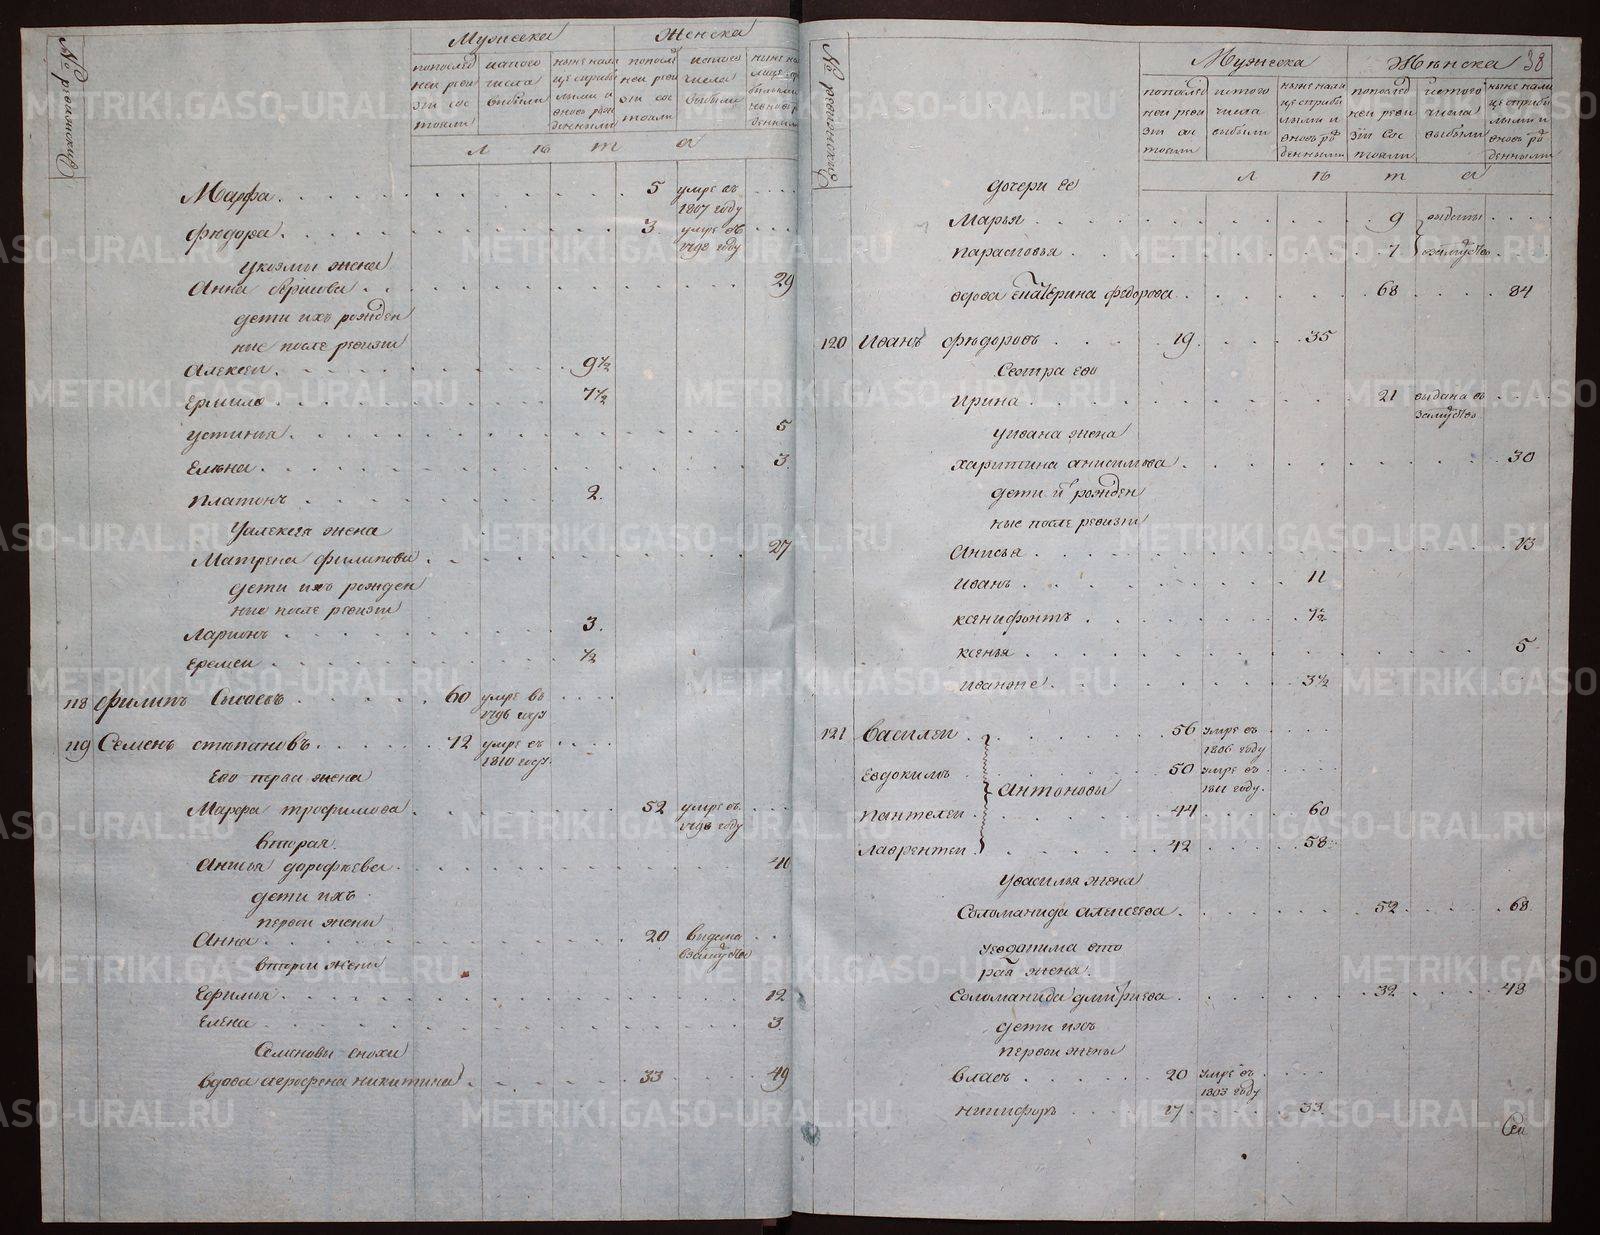 № ревижской
Мужеска Женска
попослед ней реви зiи сос тояли
исъ того числа выбыли
ныне нали це сприбы лыми и вновь рож денными
попослед ней реви зiи сос тояли
исъ того числа выбыли
лѣта
Марфа 5 умре въ 1807 году
Фѣдора 3 умре въ 1798 году
у козмы жена
Анна 29
дети ихъ рожден
ные после ревизiи
Алексеи 9 1/2
Ермило 7 1/2
Устинья 5
Елѣна 3
Платонъ 2
У алексея жена
Матрена филипова 27
дети ихъ рожден
ные после ревизiи
Ларионъ 3
Еремеи 1/2
118 Филипъ Сысоевъ 60 умре въ 1796 году
119 Семенъ степановъ 72 умре въ 1810 году
Ево первая жена
Марфа трофимова 52 умре въ 1798 году
вторая
Анисья дорофѣева 40
дети ихъ
первои жены
Анна 20 выдана взамужъство
второи жены
Ефимья 12
Елена 3
Семеновы снохи
вдова агрофена никитина 33 49
38
№ ревижской
Мужеска Женска
попослед ней реви зiи со стояли
исъ того числа выбыли
ныне нали це сприбы лыми и вновь рож денными
попослед ней реви зiи сос тояли
исъ того числа выбыли
ныне нали це сприбы лыми и вновь рож денными
лѣта
дочери ее
Марья 9 выданы
парасковья 7 взамужъство
вдова екатерина федорова 68 84
120 Иванъ фѣдоровъ 19 35
Сестра ево
Ирина 21 выдана въ замужъство
у ивана жена
харитина анисимова 30
дети ихъ рожден
ные после ревизiи
Анисья 13
Иванъ 11
ксенифонтъ 7 1/2
ксенья 5
3 1/2
121 Василеи 56 умре въ 1806 году
Евдокимъ 50 умре въ 1811 году
Антоновы
Пантелеи 44 60
Лаврентеи 42 58
У василья жена
Соломанида алексеева 52 68
У евдокима вто
рая жена
Соломанида дмитриева 32 48
дети ихъ
первои жены
Власъ 20 умре въ 1803 году
никифоръ 17 33
METRIKI.GASO-URAL.RU